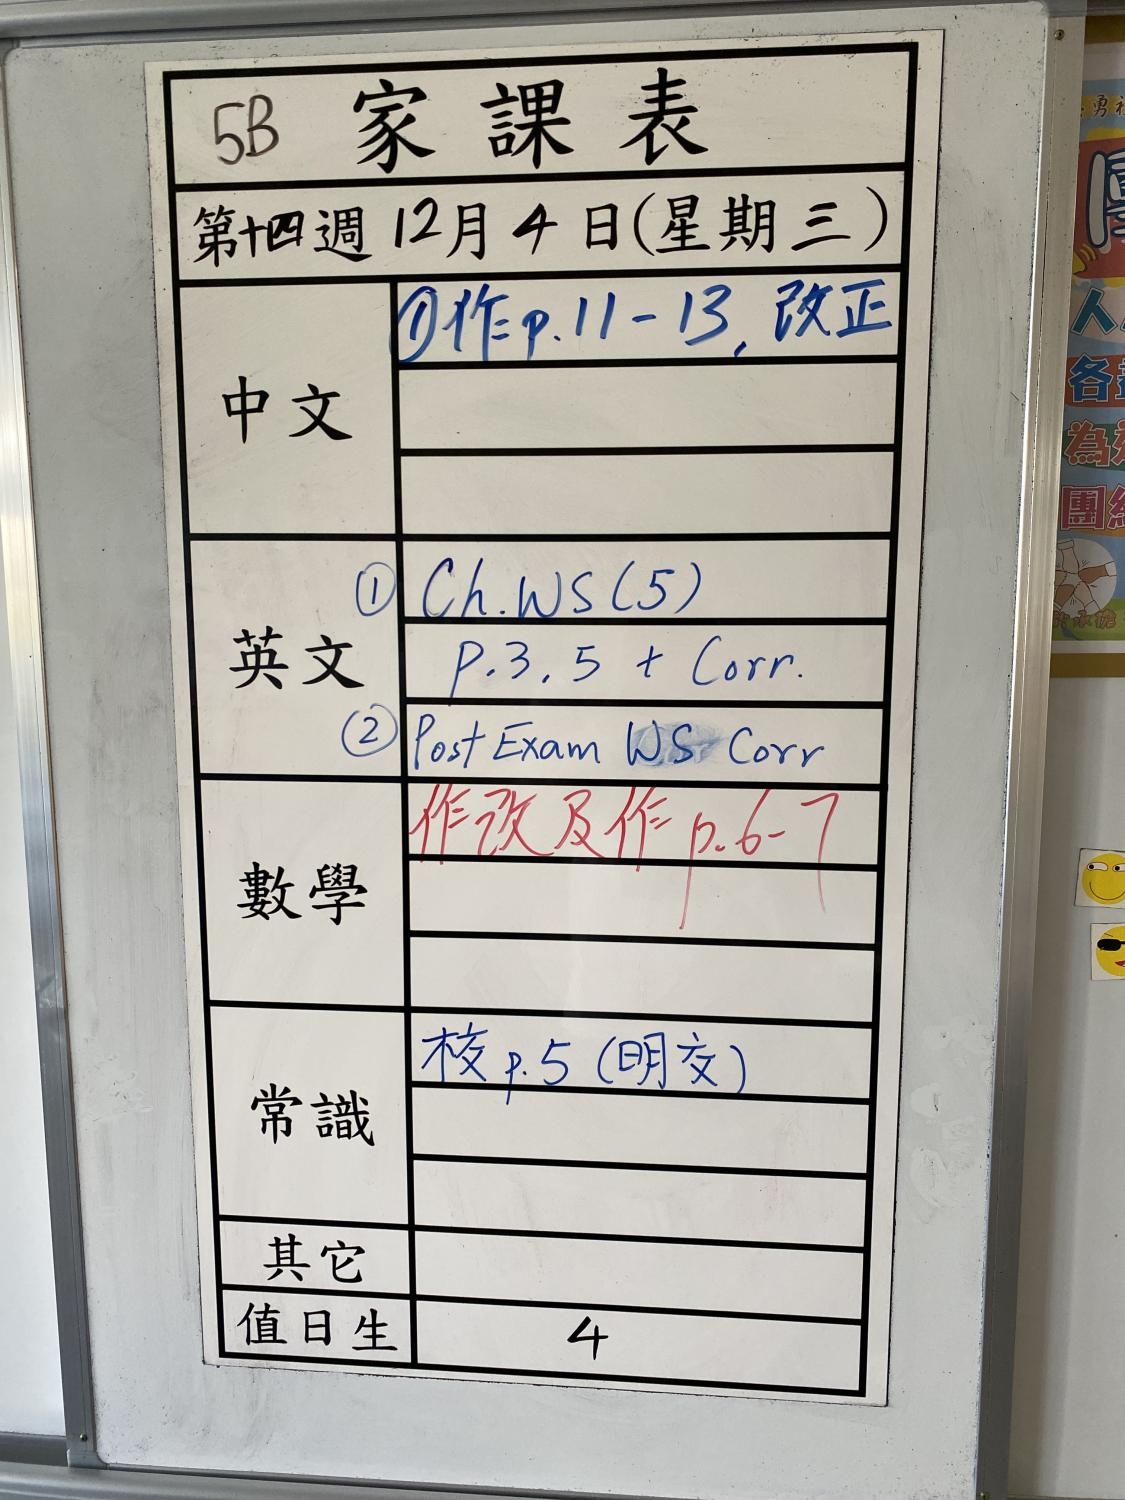 5B 家課表
第十四週 12月4日(星期三)
中文
①作p.11-13, 改正
英文
① Ch. WS (5)
p.3, 5 + Corr.
② Post Exam WS Corr
數學
作改及作 p.6-7
常識
校 p.5 (明交)
其它
值日生
4
人
各
為
團